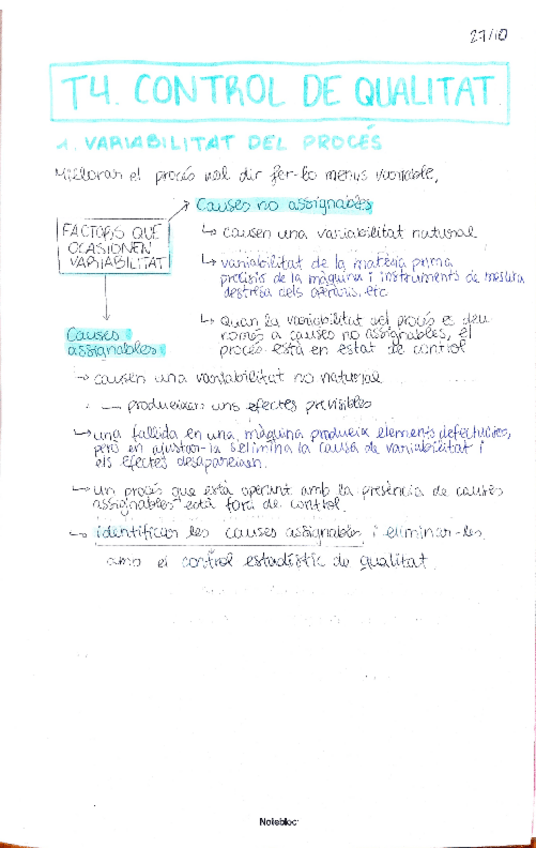 27/10
T4. CONTROL DE QUALITAT
1. VARIABILITAT DEL PROCÉS
Millorar el procés vol dir fer-lo menys variable,
Causes no assignables
FACTORS QUE
OCASIONEN
VARIABILITAT
↳ causen una variabilitat natural
↳ variabilitat de la matèria prima
precisis de la màquina i instruments de mesura
destresa dels operaris, etc
↳ Quan la variabilitat del procés es deu
només a causes no assignables, el
procés està en estat de control
Causes
assignables
→ causen una variabilitat no natural
— produeixen uns efectes previsibles
↳ una fallida en una màquina produeix elements defectuosos,
però en ajustar-la s'elimina la causa de variabilitat i
els efectes desapareixen.
↳ un procés que està operant amb la presència de causes
assignables està fora de control.
→ identificar les causes assignables i eliminar-les
amb el control estadístic de qualitat.
Notebloc